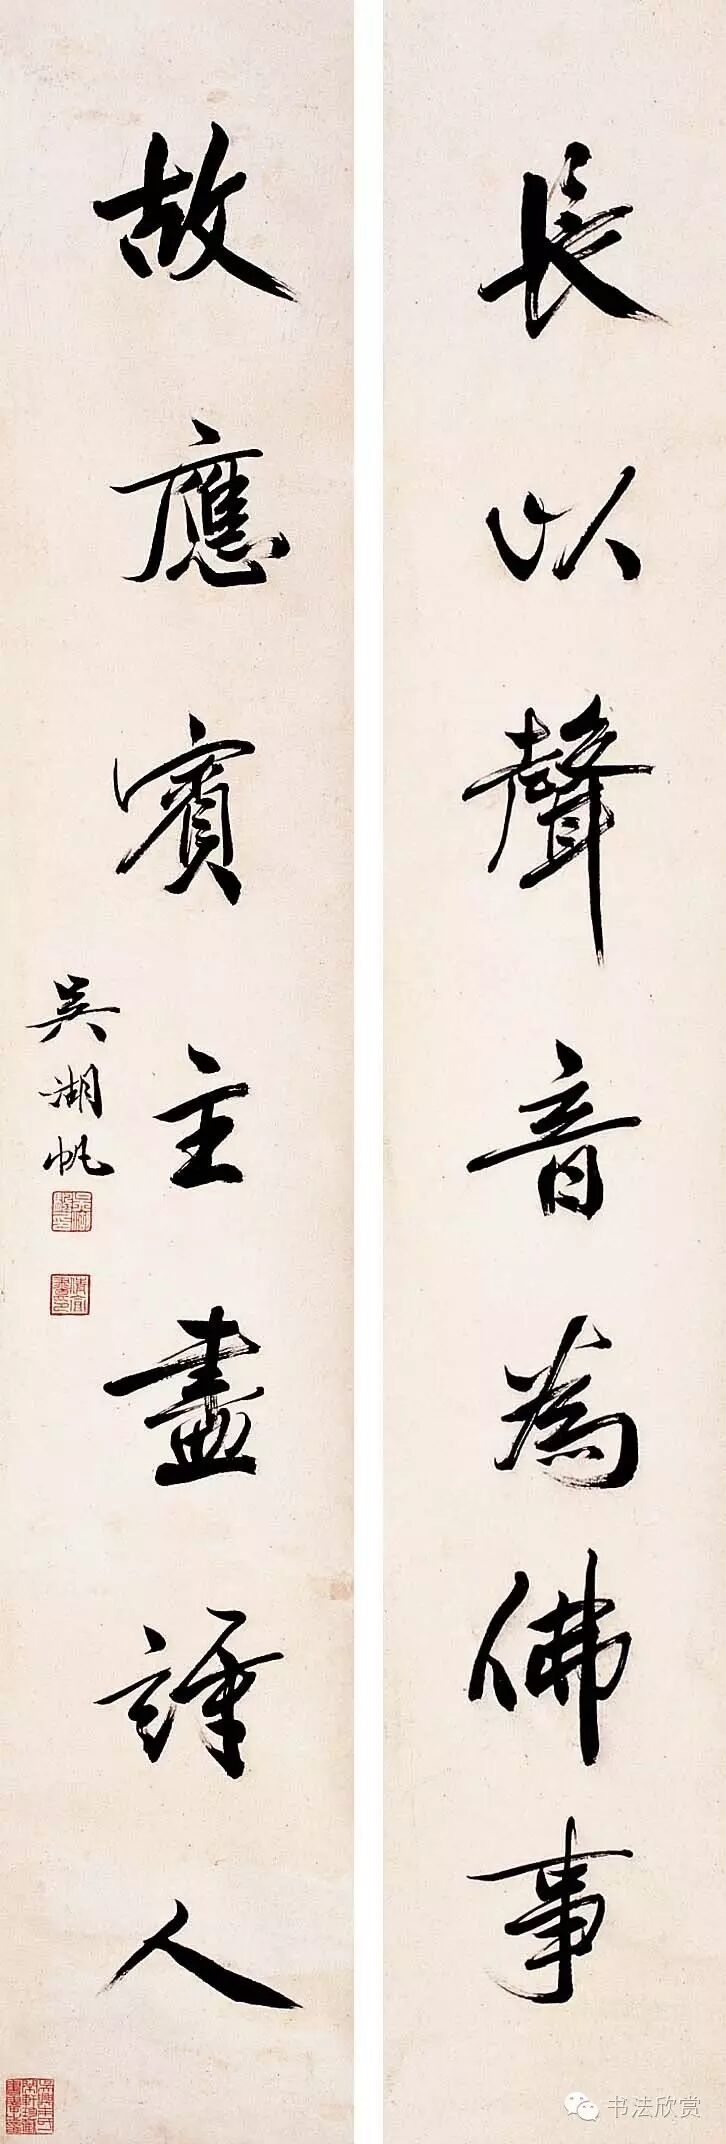 長以聲音為佛事
故應賓主盡詩人
吳湖帆
书法欣赏